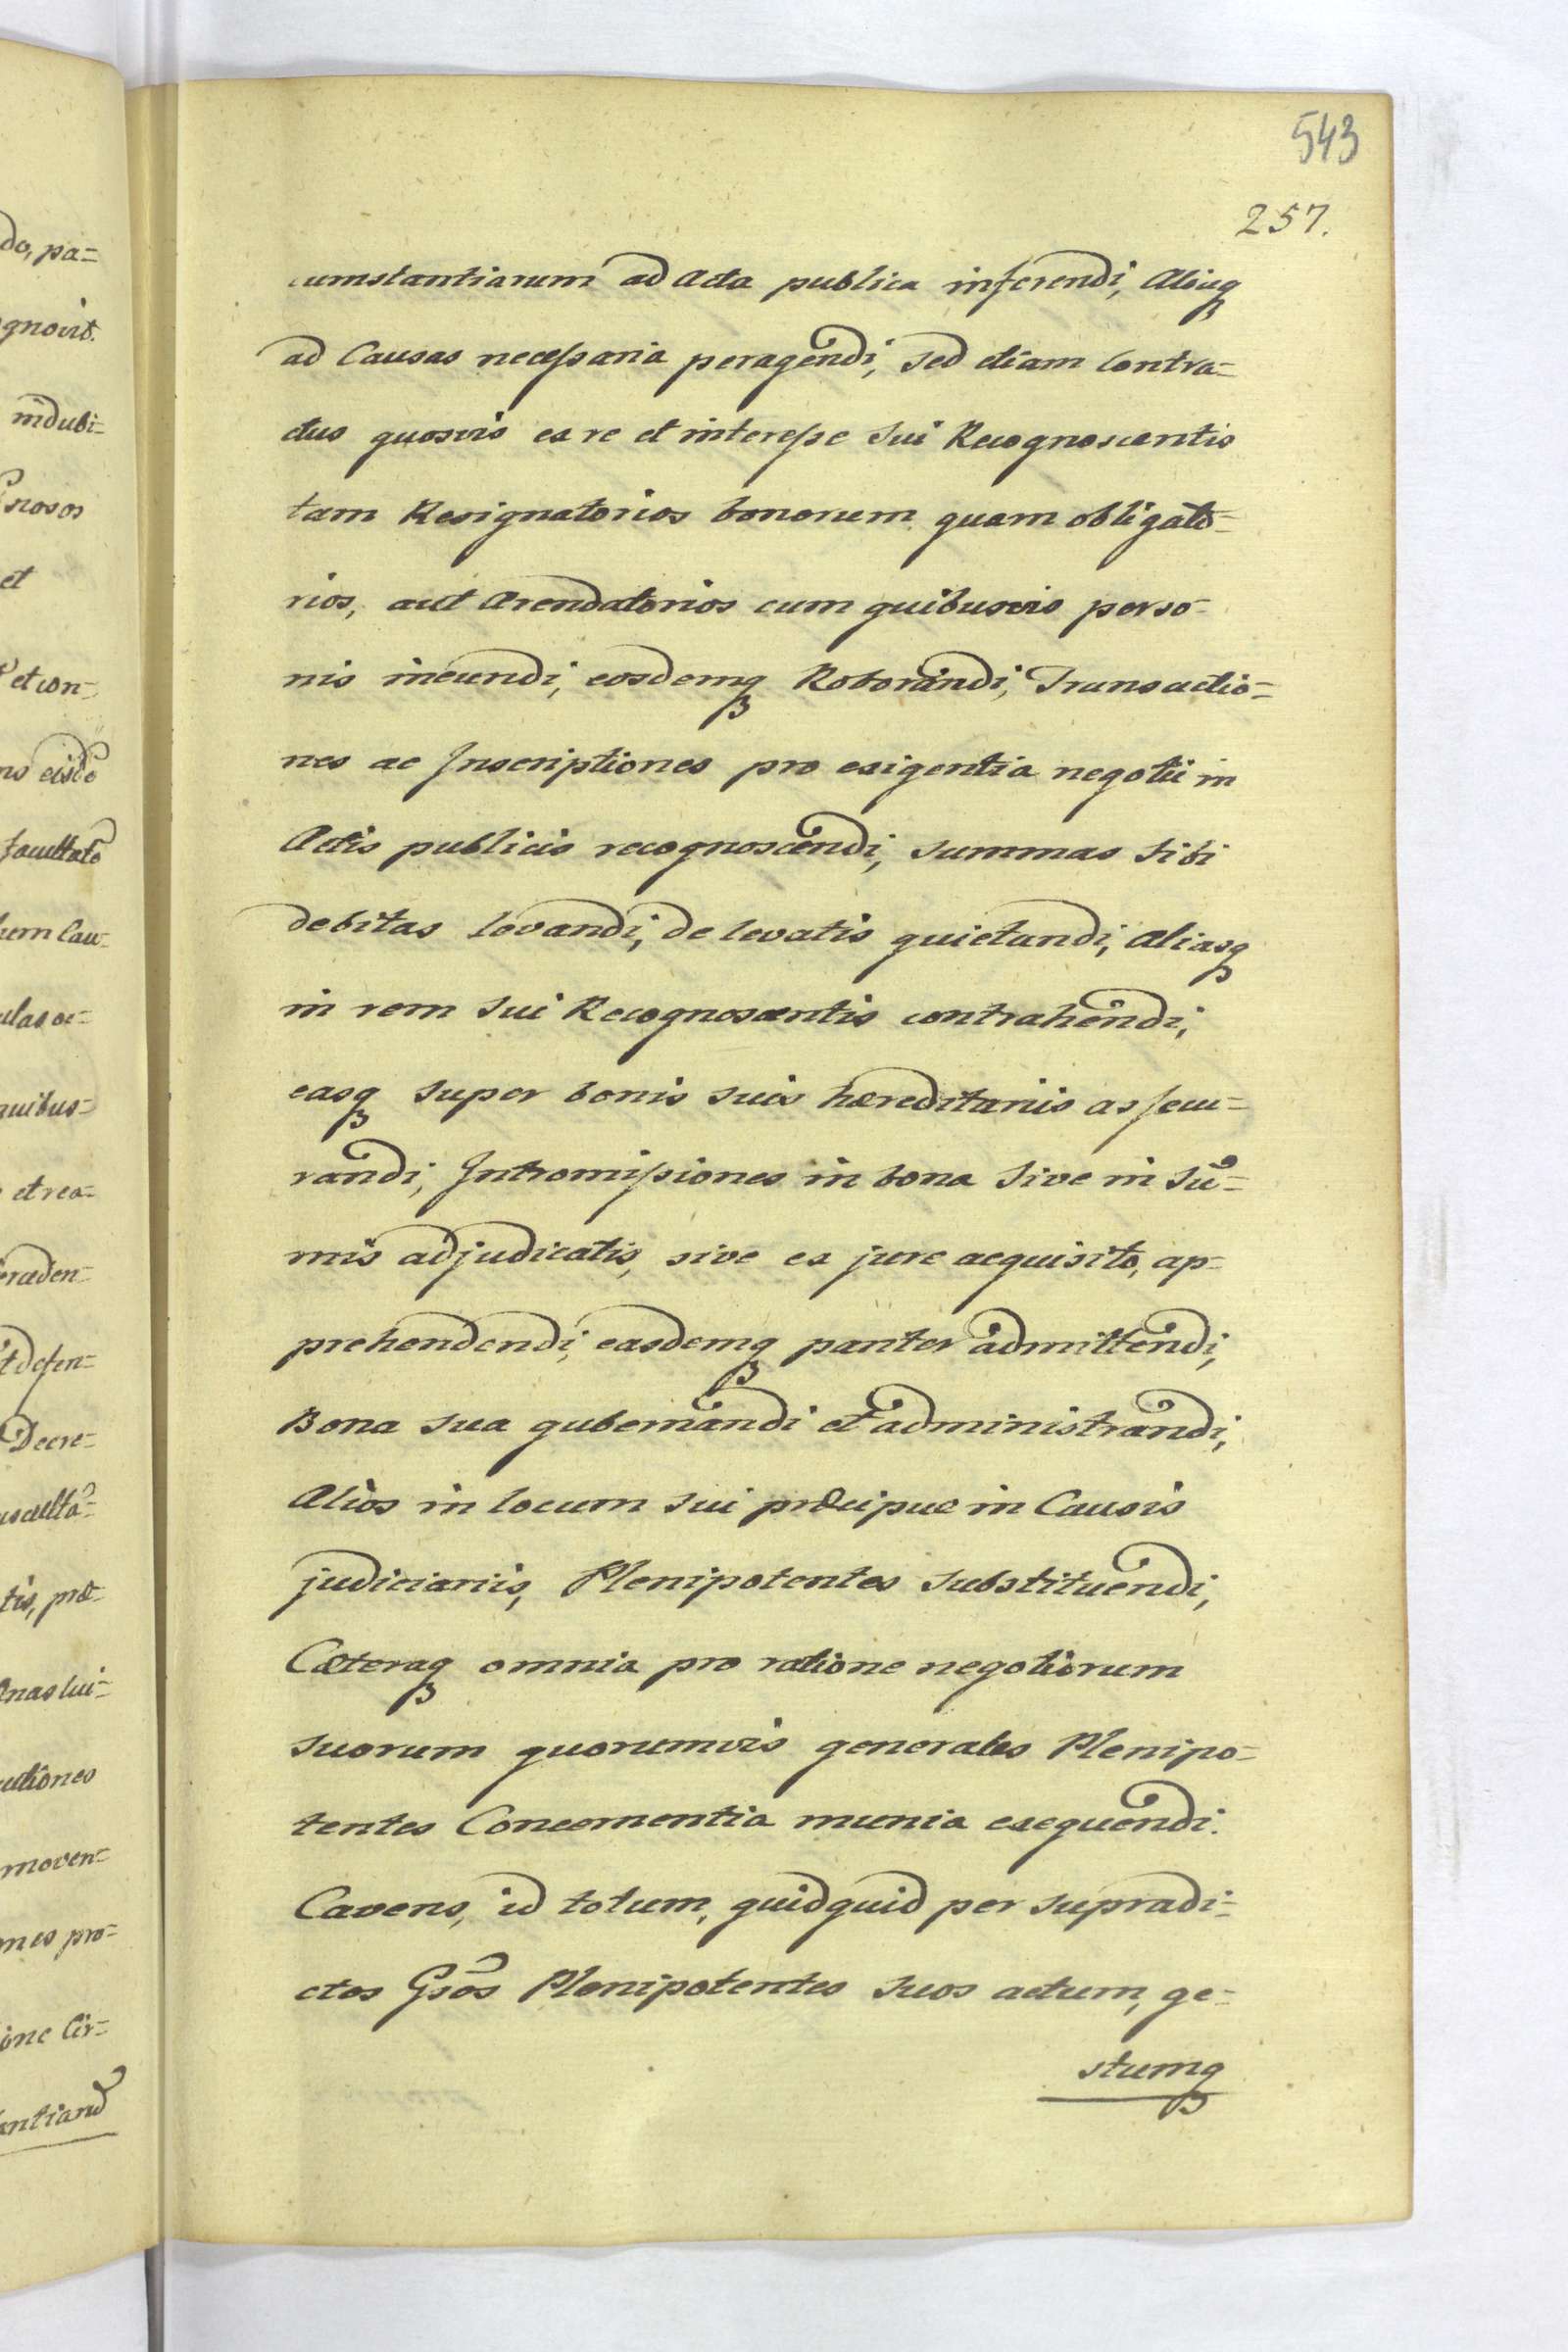 543
257.
cumstantiarum ad Acta publica inferendi, Aliaq
ad Causas necessaria peragendi, sed etiam Contra=
ctus quosvis ex re et interesse sui Recognoscentis
tam Resignatorios bonorum quam obligato=
rios, aut Arendatorios cum quibusvis perso-
nis ineundi, eosdemq Roborandi, Transactio=
nes ac Inscriptiones pro exigentia negotii in
Actis publicis recognoscendi, summas sibi
debitas levandi, de levatis quietandi, aliasq
in rem sui Recognoscentis contrahendi,
easq super bonis suis hæreditariis assecu=
randi, Intromissiones in bona sive in su̅=
mis adjudicatis, sive ex jure acquisito, ap=
prehendendi, easdemq pariter admittendi,
Bona sua gubernandi et administrandi,
Alios in locum sui præcipue in Causis
judiciariis, Plenipotentes substituendi,
Cæteraq omnia pro ratione negotiorum
suorum quorumvis generales Plenipo=
tentes Concernentia munia exequendi.
Cavens, id totum, quidquid per supradi=
ctos Gsos Plenipotentes suos actum, ge=
stumq
do, pa=
gnovit.
indubi=
Gnosos
et
et con=
ns eisde
facultate
Cau=
quibus=
et rea=
Decre=
tis, præ=
moven=
pro=
Cir=
antiarum